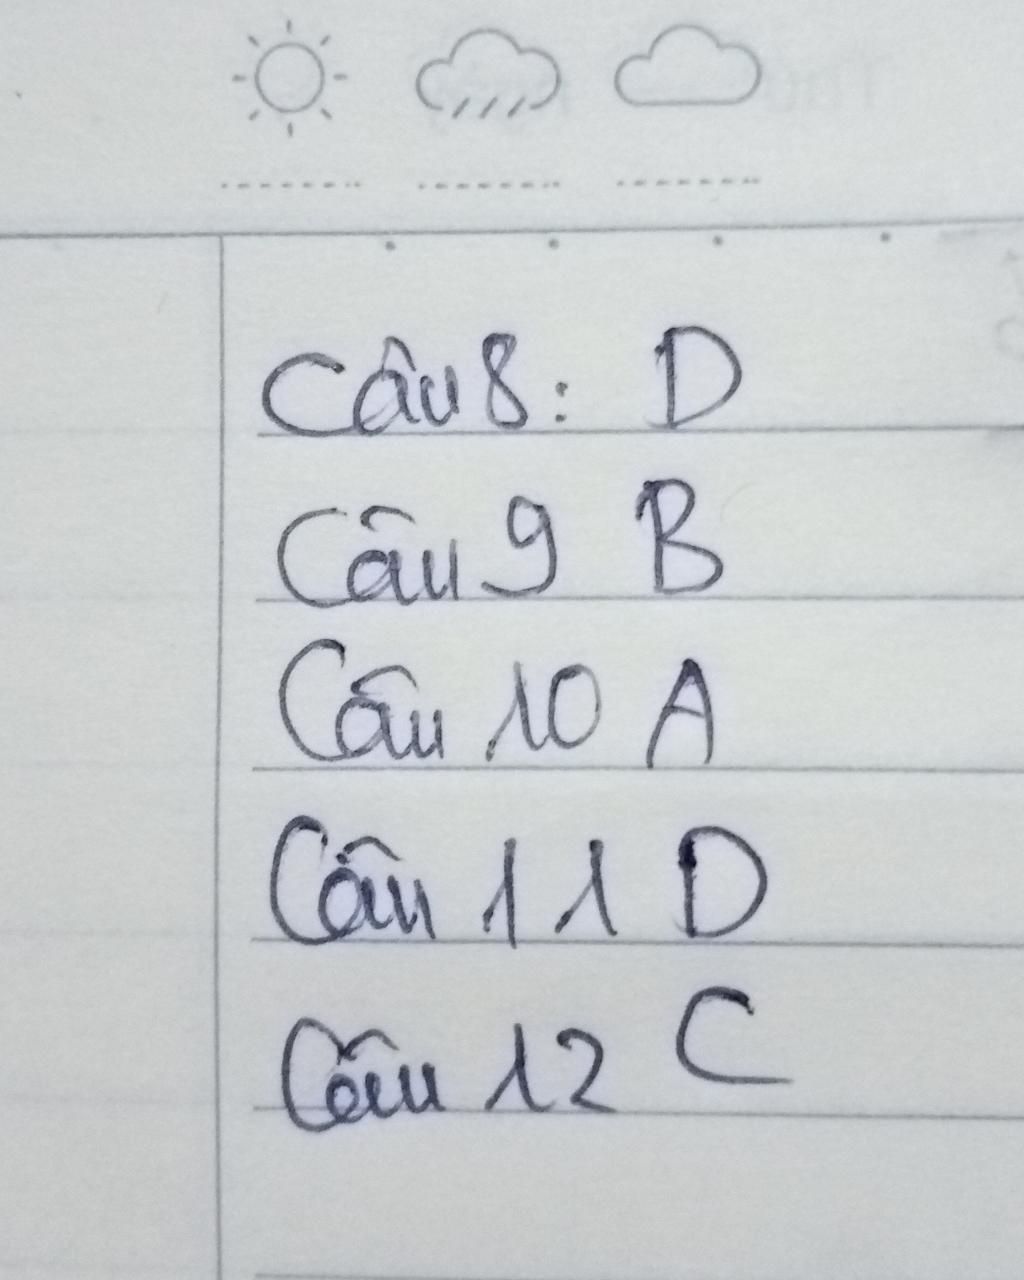 Câu 8: D
Câu 9 B
Câu 10 A
Câu 11 D
Câu 12 C